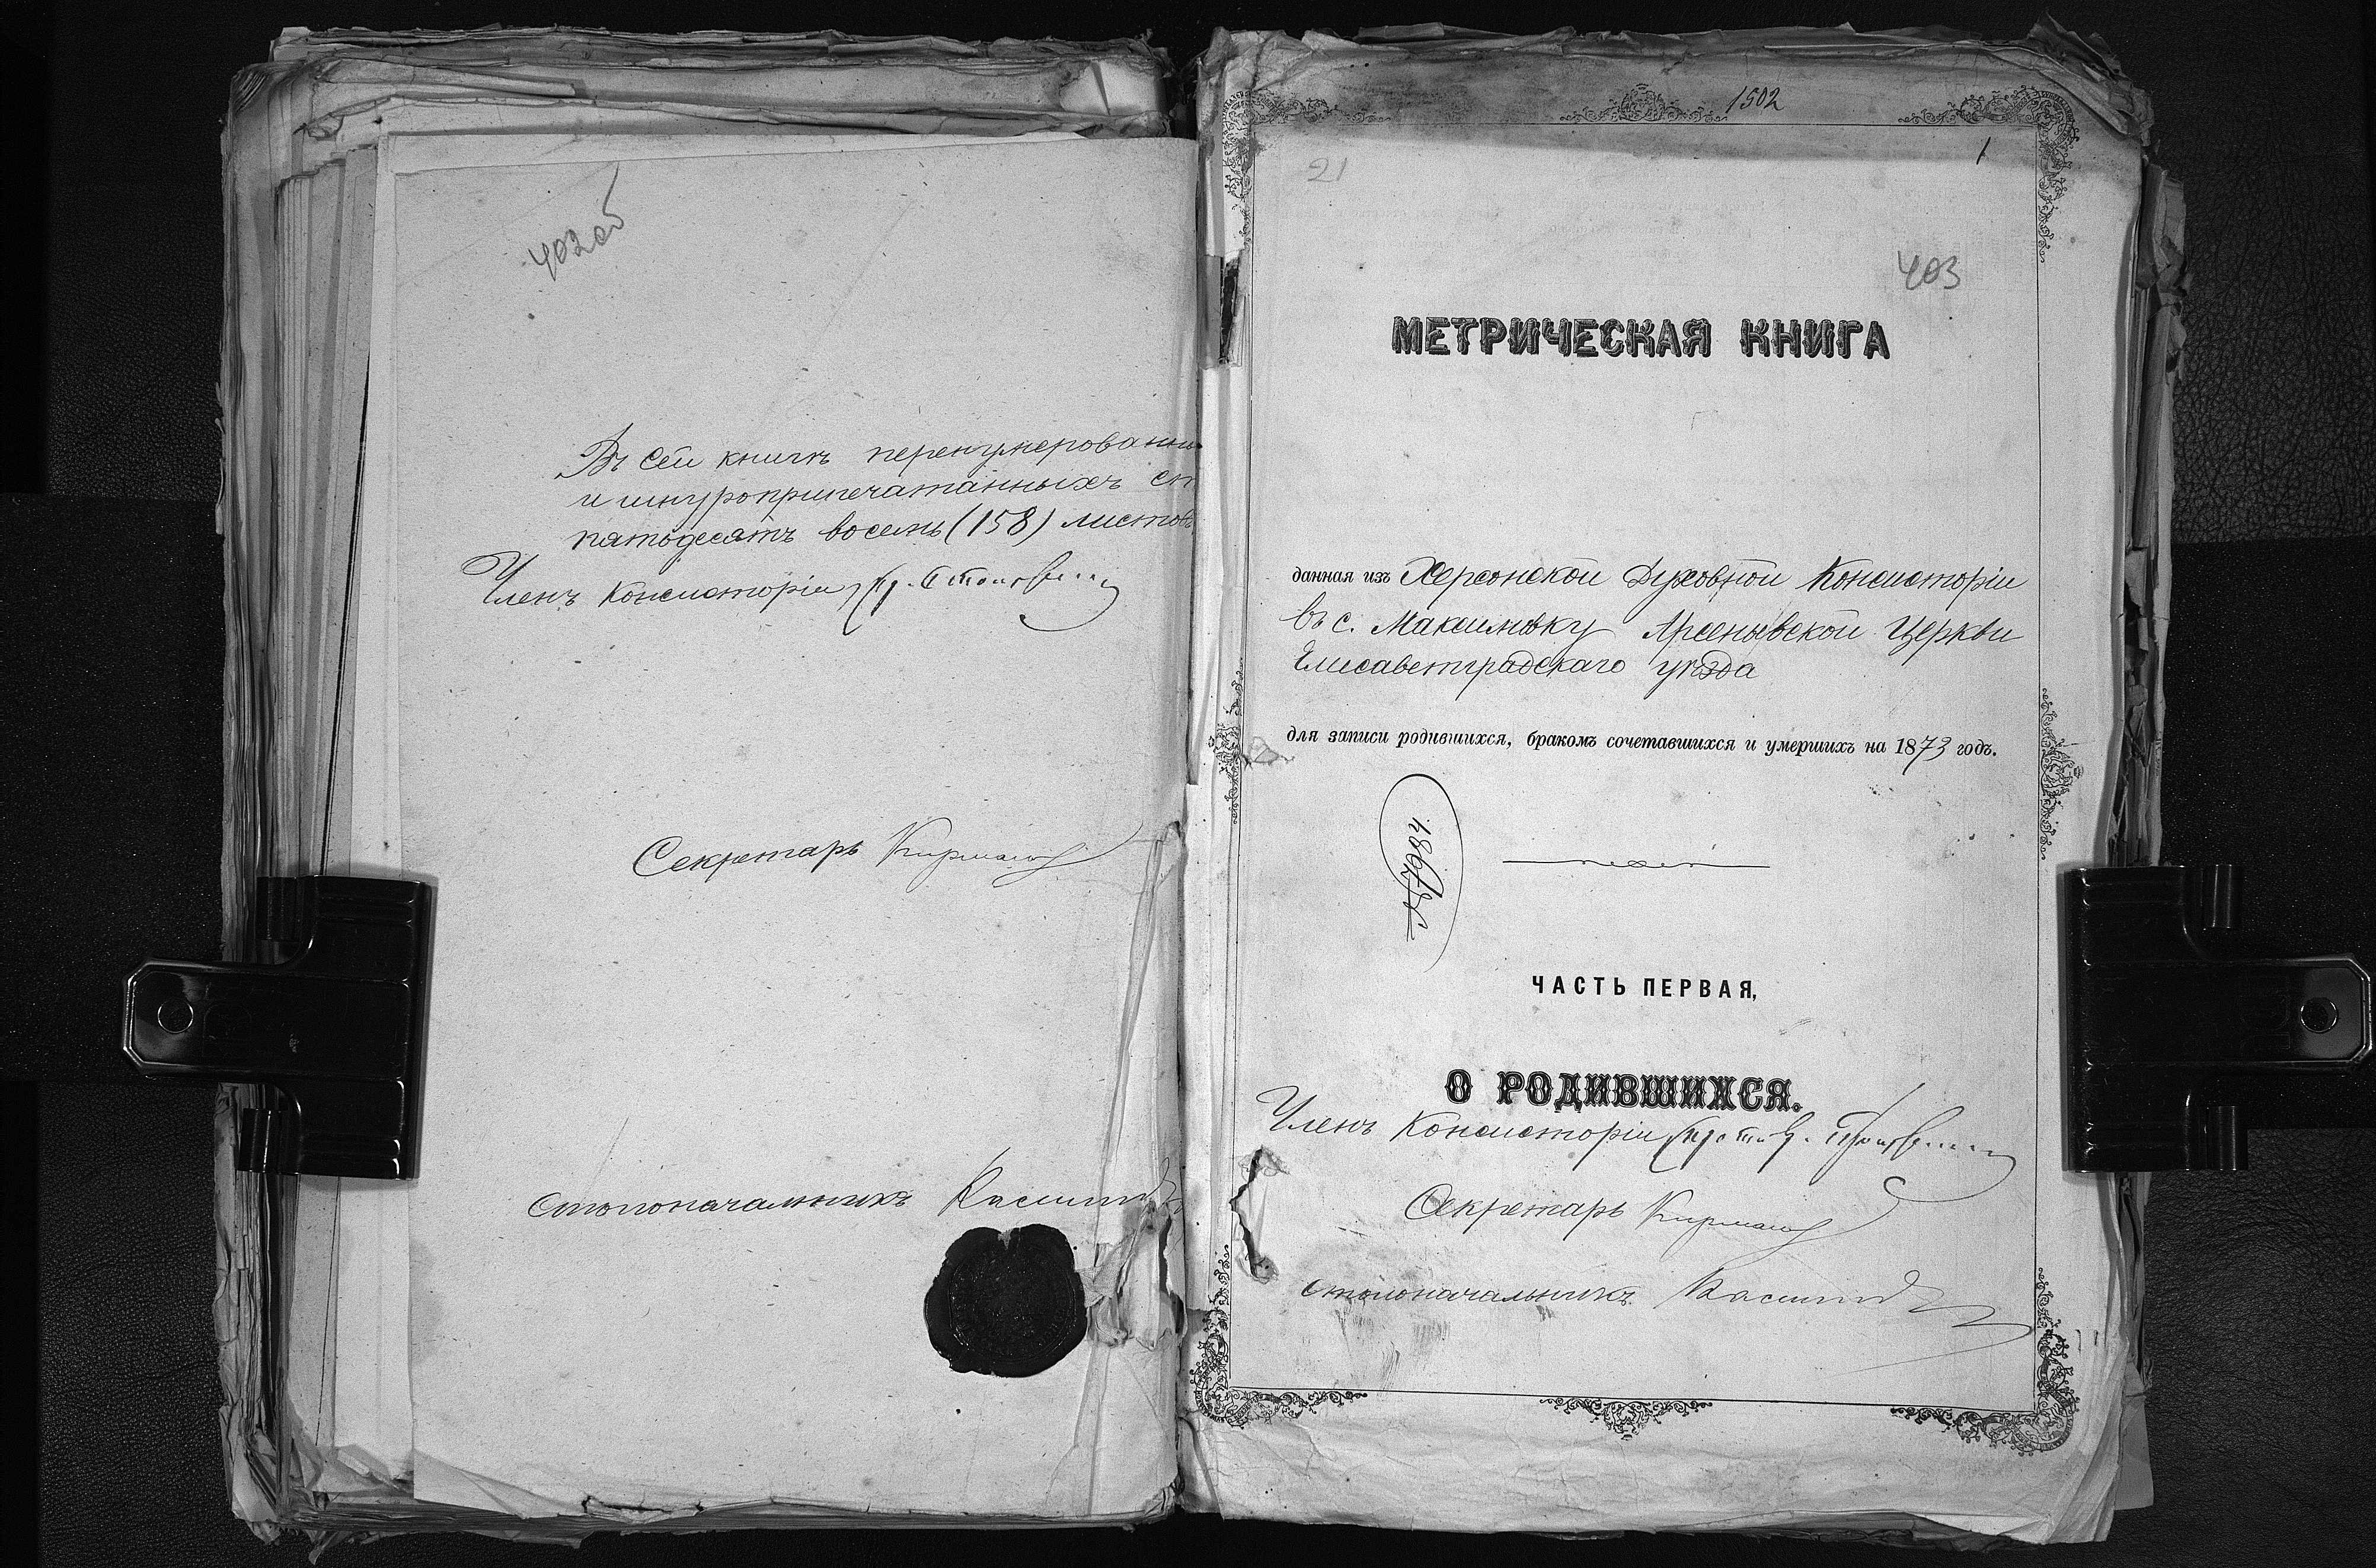 402об
Въ сей книгѣ перенумерованны
и шнуроприпечатанныхъ ст
пятьдесятъ восемь (158) листовъ
Членъ Консисторіи
Секретарь
Столоначальникъ
1502
1
21
403
МЕТРИЧЕСКАЯ КНИГА
данная изъ Херсонской Духовной Консисторіи
въ с. Максимовку Арсеньевской Церкви
Елисаветградскаго уѣзда
для записи родившихся, бракомъ сочетавшихся и умершихъ на 1873 годъ.
ЧАСТЬ ПЕРВАЯ,
О РОДИВШИХСЯ.
Членъ Консисторіи
Секретарь
Столоначальникъ